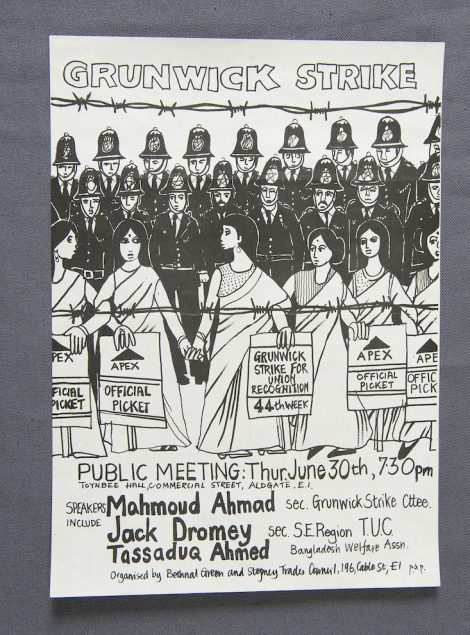 GRUNWICK STRIKE
APEX
OFFICIAL
PICKET
APEX
OFFICIAL
PICKET
GRUNWICK
STRIKE FOR
UNION
RECOGNITION
44th WEEK
APEX
OFFICIAL
PICKET
APE
OFFIC
PIC
PUBLIC MEETING: Thur June 30th, 7.30pm
TOYNBEE HALL, COMMERCIAL STREET, ALDGATE, E.1.
SPEAKERS INCLUDE
Mahmoud Ahmad sec. Grunwick Strike Cttee.
Jack Dromey sec. S.E. Region T.U.C.
Tassaduq Ahmed Bangladesh Welfare Assn.
Organised by Bethnal Green and Stepney Trades Council, 196, Cable St, E1 p&p